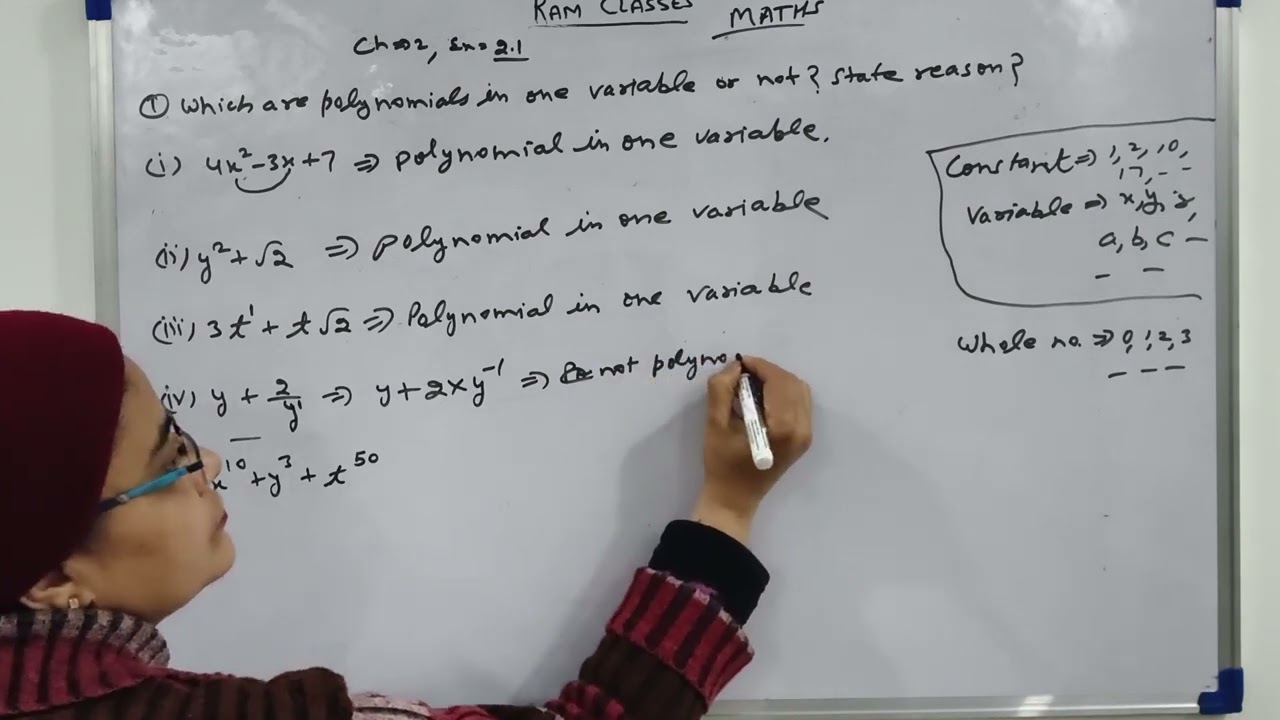 RAM CLASSES MATHS
Ch⇒2, Ex= 2.1
① which are polynomials in one variable or not? State reason?
(i) 4x² - 3x + 7 ⇒ polynomial in one variable.
(ii) y² + √2 ⇒ polynomial in one variable
(iii) 3t¹ + t√2 ⇒ Polynomial in one variable
(iv) y + 2/y¹ ⇒ y + 2xy⁻¹ ⇒ not polyno
x¹⁰ + y³ + t⁵⁰
Constant ⇒ 1, 2, 10,
17, - -
Variable ⇒ x, y, z,
a, b, c -
- -
Whole no. ⇒ 0, 1, 2, 3
- - -